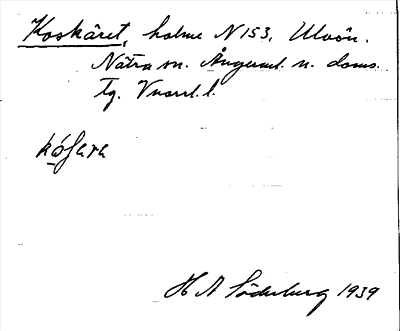 Koskäret, holme N 153, Ulvön.
Nätra sn. Ångerml. n. doms.
tg. Vnorrl. l.
kósara
H N Söderberg 1939